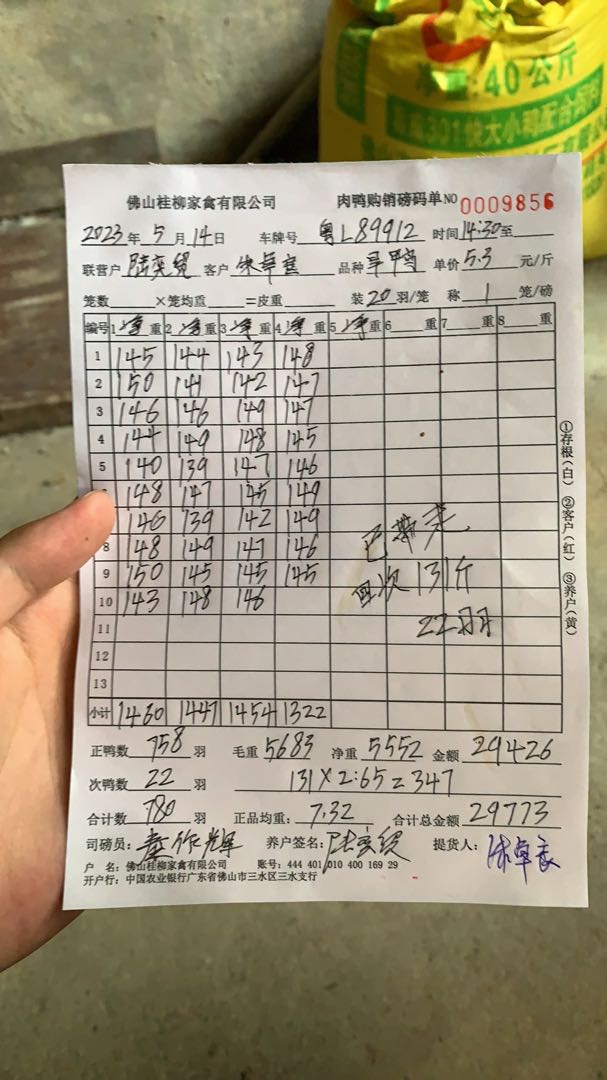 净重:40公斤
301快大小鸭配合饲料
佛山桂柳家禽有限公司 肉鸭购销磅码单 NO 0009856
2023年5月14日 车牌号 粤L89912 时间14:30至
联营户 陆奕贤 客户 品种 旱鸭 单价5.3元/斤
笼数 ×笼均重 =皮重 装20羽/笼 称1笼/磅
编号 1净重 2净重 3净重 4净重 5净重 6重 7重 8重
1 145 144 143 148
2 150 141 142 147
3 146 146 149 147
4 144 149 148 145
5 140 139 147 146
148 147 145 149
146 139 142 149
8 148 149 147 146
9 150 145 145 145
10 143 148 146
11
12
13
已带走
四次131斤
22羽
小计 1460 1447 1454 1322
正鸭数 758 羽 毛重 5683 净重 5552 金额 29426
次鸭数 22 羽 131×2.65=347
合计数 780 羽 正品均重: 7.32 合计总金额 29773
司磅员: 养户签名: 陆奕贤 提货人:
户 名: 佛山桂柳家禽有限公司 账号: 444 401 010 400 169 29
开户行: 中国农业银行广东省佛山市三水区三水支行
①存根(白) ②客户(红) ③养户(黄)